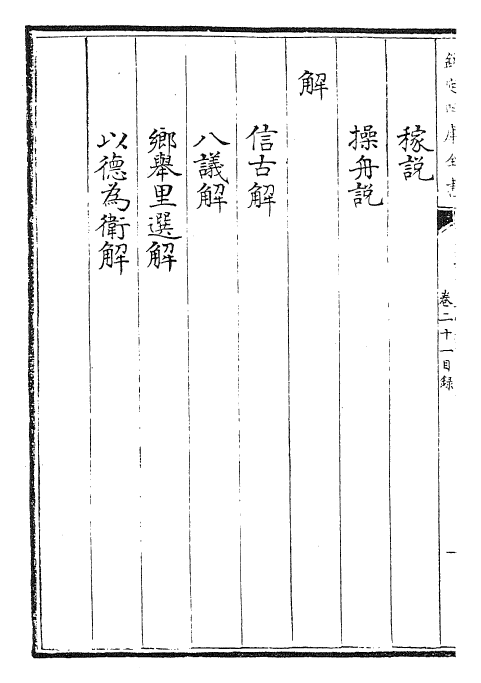 欽定四庫全書
卷二十一目録
一
稼説
操舟説
解
信古解
八議解
鄉舉里選解
以德為衛解